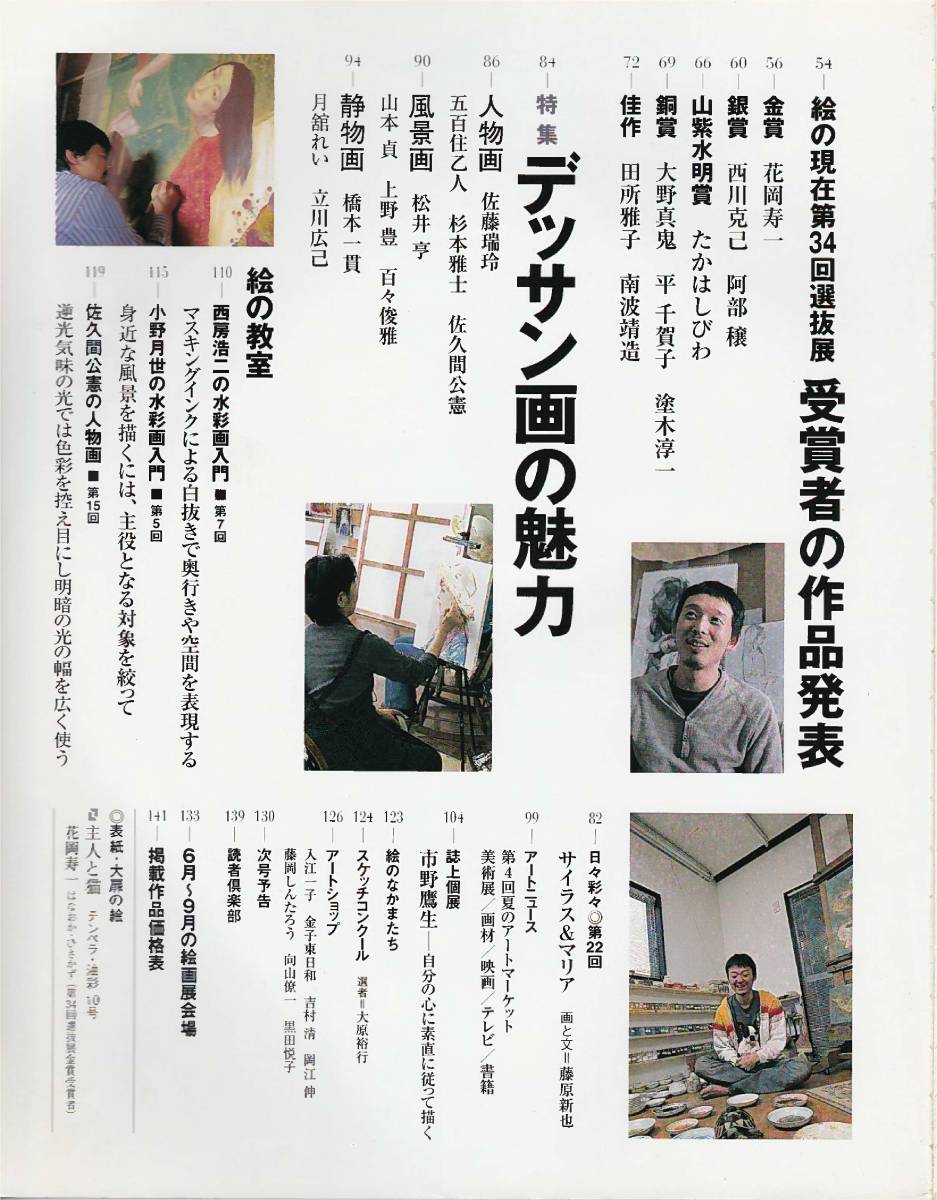 54―絵の現在第34回選抜展 受賞者の作品発表
56―金賞 花岡寿一
60―銀賞 西川克己 阿部 穣
66―山紫水明賞 たかはしびわ
69―銅賞 大野真鬼 平 千賀子 塗木淳一
72―佳作 田所雅子 南波靖造
84―特集 デッサン画の魅力
86―人物画 佐藤瑞玲
五百住乙人 杉本雅士 佐久間公憲
90―風景画 松井 亨
山本 貞 上野 豊 百々俊雅
94―静物画 橋本一貫
月舘れい 立川広己
絵の教室
110―西房浩二の水彩画入門■第7回
マスキングインクによる白抜きで奥行きや空間を表現する
115―小野月世の水彩画入門■第5回
身近な風景を描くには、主役となる対象を絞って
119―佐久間公憲の人物画■第15回
逆光気味の光では色彩を控え目にし明暗の光の幅を広く使う
82―日々彩々◎第22回
サイラス&マリア 画と文=藤原新也
99―アートニュース
第4回夏のアートマーケット
美術展/画材/映画/テレビ/書籍
104―誌上個展
市野鷹生―自分の心に素直に従って描く
123―絵のなかまたち
124―スケッチコンクール 選者=大原裕行
126―アートショップ
入江一子 金子東日和 吉村 清 岡江 伸
藤岡しんたろう 向山僚一 黒田悦子
130―次号予告
139―読者倶楽部
133―6月〜9月の絵画展会場
141―掲載作品価格表
◎表紙・大扉の絵
主人と猫 テンペラ・油彩 10号
花岡寿一 はなおか・ひさかず(第34回選抜展金賞受賞者)